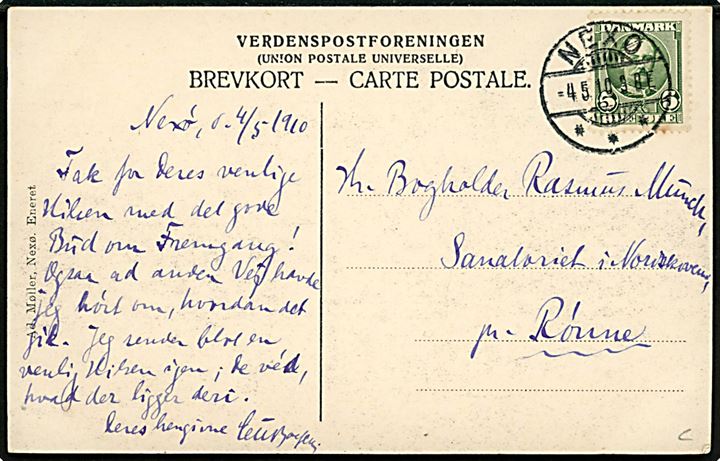 VERDENSPOSTFORENINGEN
(UNION POSTALE UNIVERSELLE)
BREVKORT — CARTE POSTALE.
DANMARK
5 5
NEXØ
4.5.10
Nexø, d. 4/5 1910
Tak for Deres venlige
Hilsen med det gode
Bud om Fremgang!
Ogsaa ad anden Vej havde
jeg hørt om, hvordan det
gik. Jeg sender blot en
venlig Hilsen igen; De véd,
hvad der ligger deri.
Deres hengivne
Hr. Bogholder Rasmus Munch,
Sanatoriet i Nordskoven,
pr. Rønne
Ad. Møller, Nexø. Eneret
c